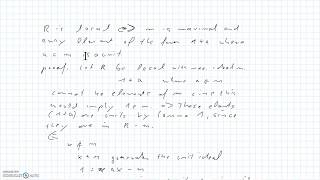 R is local <=> m is maximal and
every element of the form 1+a where
a ∈ m is a unit
proof. Let R be local with max. ideal m.
1+a where a ∈ m
cannot be elements of m since this
would imply 1 ∈ m. => These elements
(1+a) are units by Lemma 1, since
they are in R - m.
<=
x ∉ m
x + m generates the unit ideal
1 = ax - m